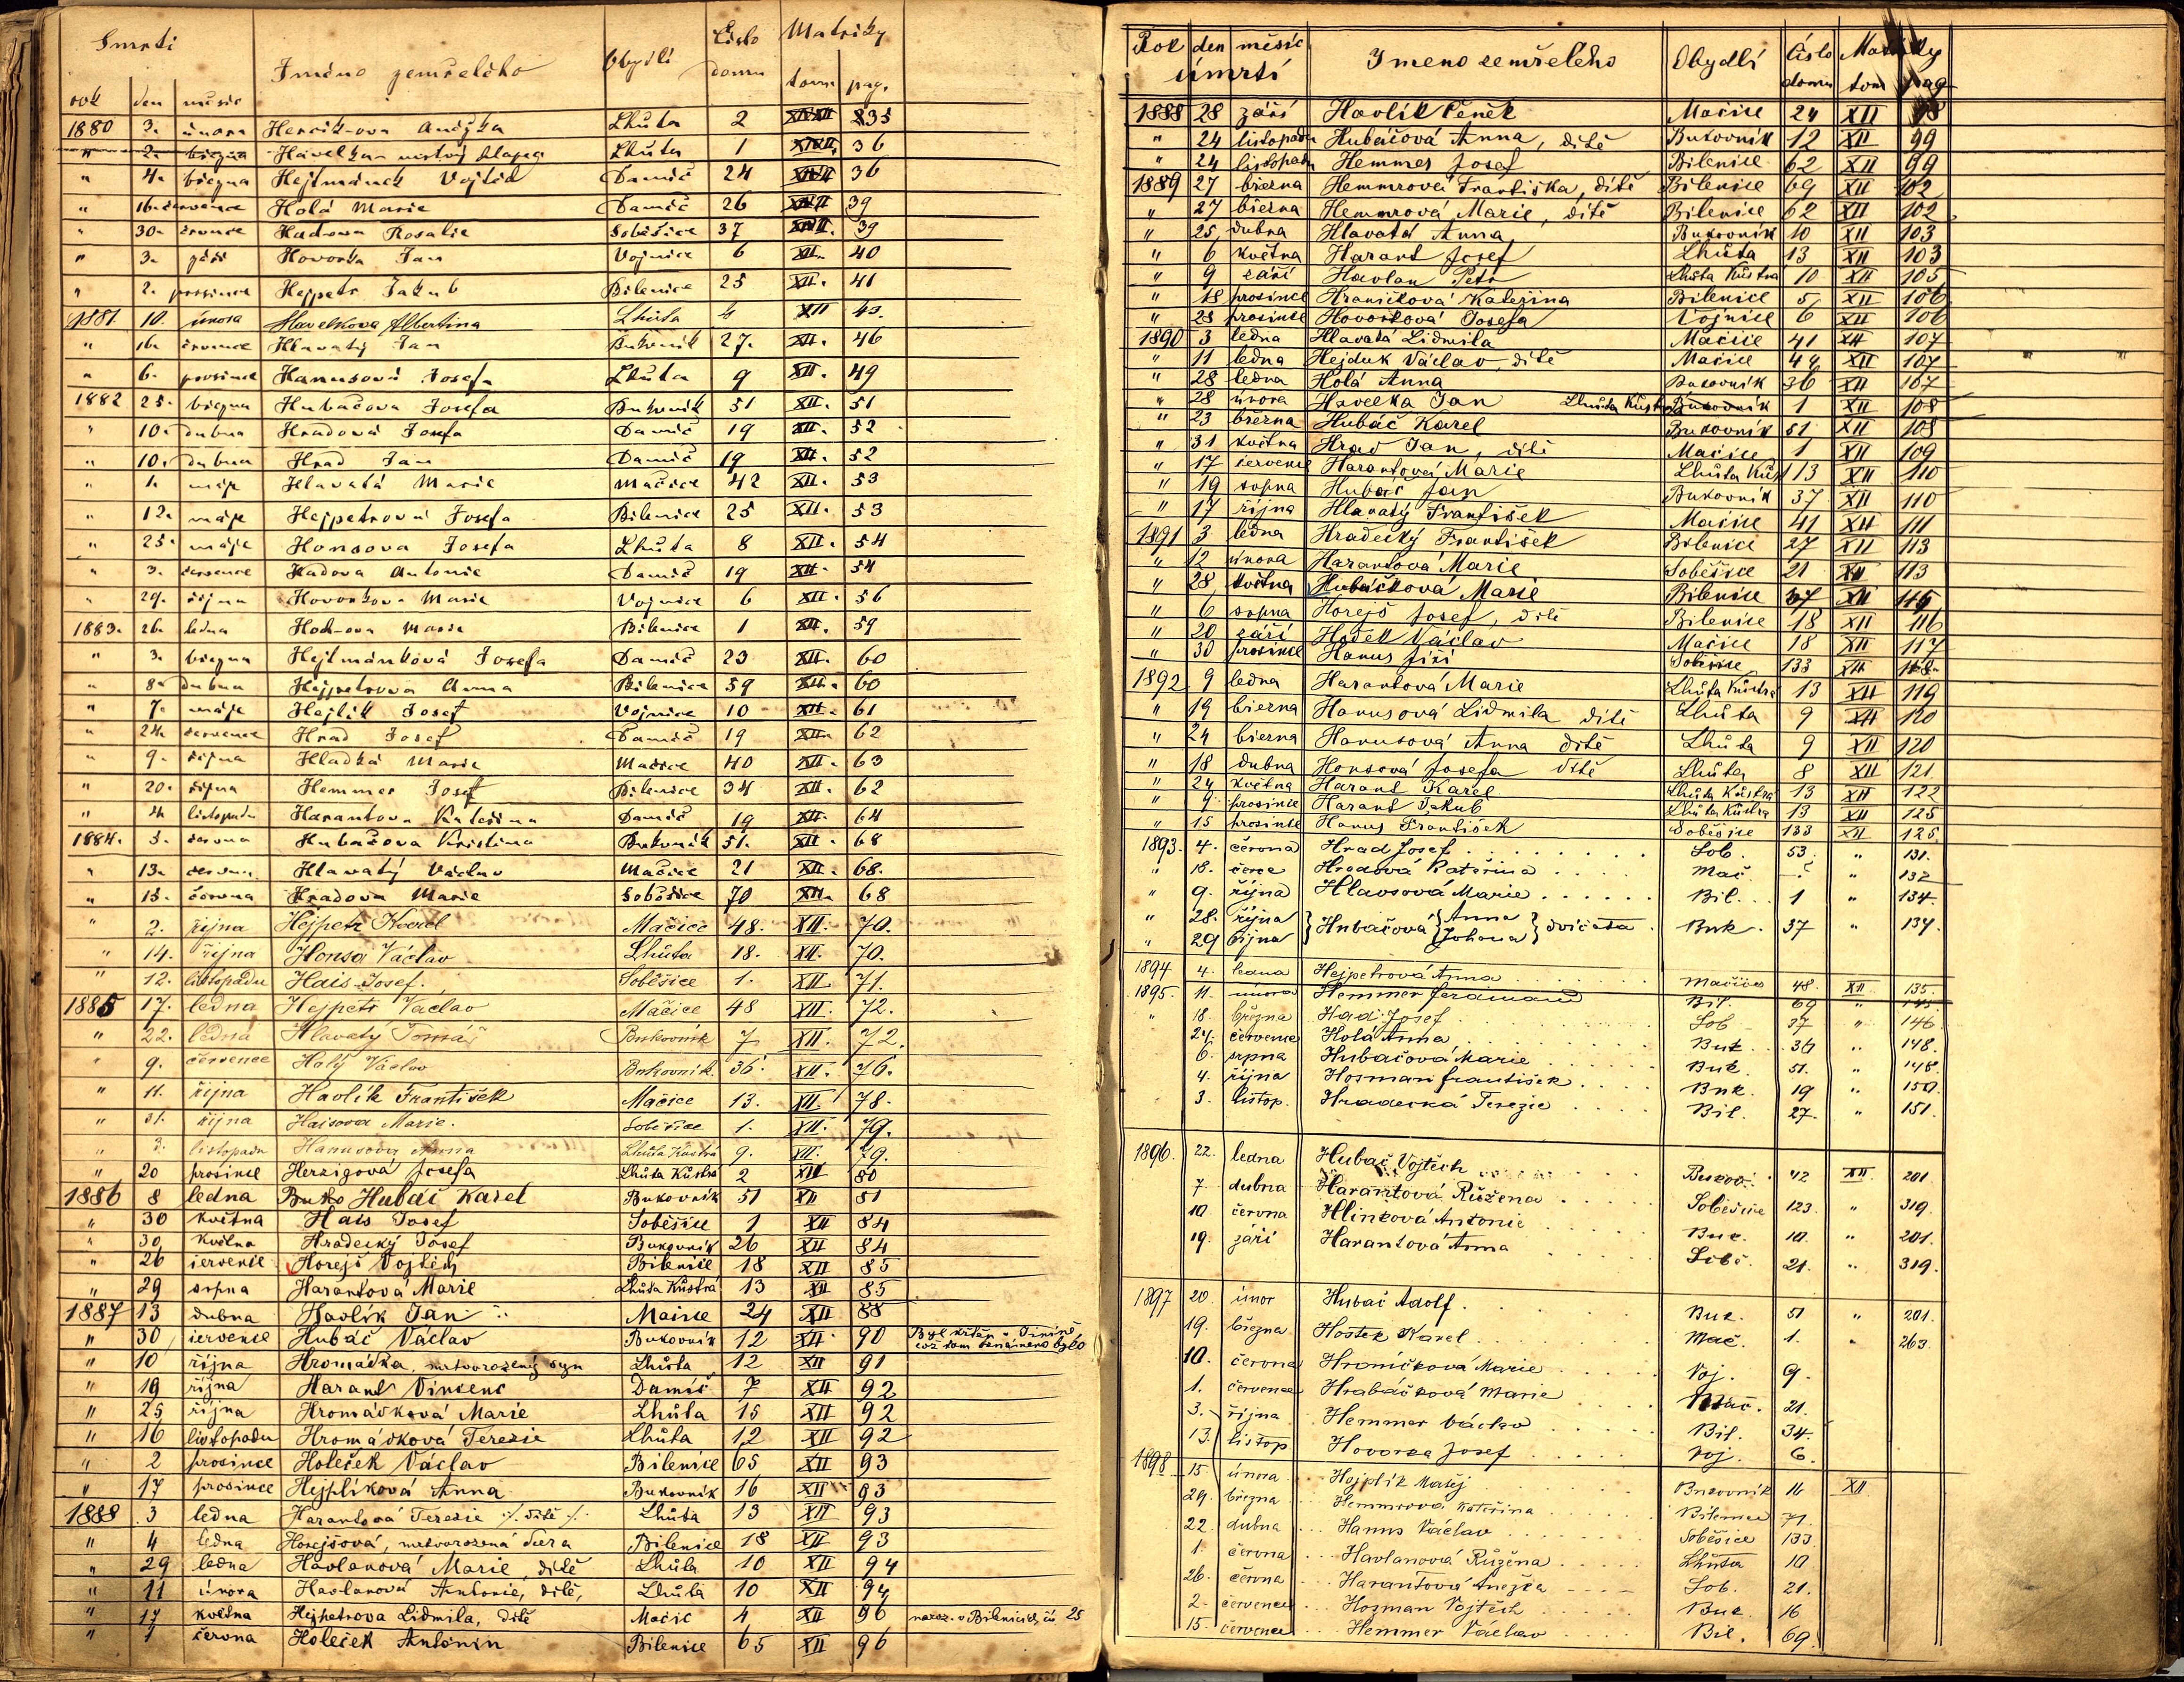 Smrti Jméno zemřelého Obydlí Číslo domu Matriky
rok den měsíc tom pag.
1880 3. února Lhůta 2 35
" 2. března Lhůta 1 36
" 4. března Hejtmánek Vojtěch Damíč 24 36
" 16. července Holá Marie Damíč 26 39
" 30. července Hadova Rosalie Soběšice 37 39
" 3. září Hovorka Jan Vojnice 6 XII. 40
" 2. prosince Hejpetr Jakub Bílenice 25 XII. 41
1881. 10. února Havelkova Albertina Lhůta XII 43.
" 16. července Hlavatý Jan Bukovník 27. XII. 46
" 6. prosince Hanusová Josefa Lhůta 9 XII. 49
1882 25. března Hubačova Josefa Bukovník 51 XII. 51
" 10. dubna Hradová Josefa Damíč 19 XII. 52
" 10. dubna Hrad Jan Damíč 19 XII. 52
" 1. máje Hlavatá Marie Mačice 42 XII. 53
" 12. máje Hejpetrová Josefa Bílenice 25 XII. 53
" 25. máje Honsova Josefa Lhůta 8 XII. 54
" 3. července Hadova Antonie Damíč 19 XII. 54
" 29. října Hovorkova Marie Vojnice 6 XII. 56
1883. 26. ledna Marie Bílenice 1 XII. 59
" 3. března Hejtmánková Josefa Damíč 23 XII. 60
" 8. dubna Hejpetrova Anna Bílenice 59 XII. 60
" 7. máje Hejlík Josef Vojnice 10 XII. 61
" 24. července Hrad Josef Damíč 19 XII. 62
" 9. října Hladká Marie Mačice 40 XII. 63
" 20. října Hemmer Josef Bílenice 34 XII. 62
" 4. listopadu Harantova Kateřina Damíč 19 XII. 64
1884. 5. června Hubačova Kristina Bukovník 51. XII. 68
" 13. června Hlavatý Václav Mačice 21 XII. 68.
" 15. června Hradova Marie Soběšice 70 XII. 68
" 2. října Hejpetr Karel Mačice 48. XII. 70.
" 14. října Honsa Václav Lhůta 18. XII. 70.
" 12. listopadu Hais Josef. Soběšice 1. XII. 71.
1885 17. ledna Hejpetr Václav Mačice 48 XII. 72.
" 22. ledna Hlavatý Tomáš Bukovník 7 XII. 72.
" 9. července Holý Václav Bukovník. 36. XII. 76.
" 11. října Havlík František Mačice 13. XII. 78.
" 31. října Haisova Marie. Soběšice 1. XII. 79.
" 3. listopadu Hanusova Anna Lhůta Kústrá 9. XII. 79.
" 20 prosince Herzigova Josefa Lhůta Kůstrá 2 XII 80
1886 8 ledna Buko Hubač Karel Bukovník 51 XII 81
" 30 května Hais Josef Soběšice 1 XII 84
" 30 května Hradecký Josef Bukovník 26 XII 84
" 26 července Horejš Vojtěch Bilenice 18 XII 85
" 29 srpna Harantová Marie Lhůta Kůstrá 13 XII 85
1887 13 dubna Havlík Jan Mačice 24 XII 88
" 30 července Hubáč Václav Bukovník 12 XII 90
" 10 října Hromádka mrtvorozený syn Lhůta 12 XII 91
" 19 října Harant Vincenc Damíč 7 XII 92
" 25 října Hromádková Marie Lhůta 15 XII 92
" 16 listopadu Hromádková Terezie Lhůta 12 XII 92
" 2 prosince Holeček Václav Bilenice 65 XII 93
" 17 prosince Hejplíková Anna Bukovník 16 XII 93
1888 3 ledna Harantová Terezie ·/. dítě ·/. Lhůta 13 XII 93
" 4 ledna Horejšová, mrtvorozená dcera Bilenice 18 XII 93
" 29 ledna Havlanová Marie, dítě Lhůta 10 XII 94
" 11 února Havlanová Antonie, dítě, Lhůta 10 XII 94
" 17 května Hejpetrova Lidmila, dítě Mačic 4 XII 96 naroz. v Bilenicích čís 25
" 1 června Holeček Antonín Bilenice 65 XII 96
Rok den měsíc Jmeno zemřelého Obydlí Číslo Matriky
úmrtí domu tom pag
1888 28 září Havlík Čeněk Mačice 24 XII 98
" 24 listopadu Hubáčová Anna, dítě Bukovník 12 XII 99
" 24 listopadu Hemmer Josef Bilenice 62 XII 99
1889 27 března Hemmrová Františka, dítě Bilenice 69 XII 102
" 27 března Hemmrová Marie, dítě Bilenice 62 XII 102
" 25 dubna Hlavatá Anna Bukovník 10 XII 103
" 6 května Harant Josef Lhůta 13 XII 103
" 9 září Havlan Petr Lhůta Kůstrá 10 XII 105
" 18 prosince Hraničková Kateřina Bilenice 51 XII 106
" 28 prosince Hovorková Josefa Vojnice 6 XII 106
1890 3 ledna Hlavatá Lidmila Mačice 41 XII 107
" 11 ledna Hejduk Václav, dítě Mačice 44 XII 107
" 28 ledna Holá Anna Bukovník 36 XII 107
" 28 února Havelka Jan Lhůta Kůstrá Bukovník 1 XII 108
" 23 března Hubáč Karel Bukovník 51 XII 108
" 31 května Hrad Jan, dítě Mačice 1 XII 109
" 17 července Harantová Marie Lhůta Kůs 13 XII 110
" 19 srpna Hubáč Jan Bukovník 37 XII 110
" 17 října Hlavatý František Mačice 41 XII 111
1891 3 ledna Hradecký František Bilenice 27 XII 113
" 12 února Harantová Marie Soběšice 21 XII 113
" 28 května Hubáčková Marie Bilenice 37 XII 115
" 6 srpna Horejš Josef, dítě Bilenice 18 XII 116
" 20 září Hošek Václav Mačice 18 XII 117
" 30 prosince Hanus Jiří Soběšice 133 XII 118
1892 9 ledna Harantová Marie Lhůta Kůstrá 13 XII 119
" 19 března Hanusová Lidmila dítě Lhůta 9 XII 120
" 24 března Hanusová Anna dítě Lhůta 9 XII 120
" 18 dubna Honsová Josefa dítě Lhůta 8 XII 121.
" 24 května Harant Karel Lhůta Kůstrá 13 XII 122
" 9 prosince Harant Jakub Lhůta Kůstrá 13 XII 125
" 15 prosince Hanus František Soběšice 133 XII 125
1893. 4. června Hrad Josef Sob. 53. " 131.
" 18. Hradová Kateřina Mač. " 132
" 9. října Hlavsová Marie Bil. 1 " 134.
" 28. října } Hubačová { Anna } dvojčata. Buk. 37 " 134.
" 29 října Johana
1894 4. ledna Hejpetrová Anna Mačice 48. XII. 135.
1895. 11. února Hemmer Ferdinand Bil. 69 " 145
" 18. března Had Josef Sob 37 " 146
24. července Holá Anna Buk. 36 " 148.
6. srpna Hubačová Marie Buk. 51. " 148.
4. října Hosman František Buk. 19 " 150.
3. listop. Hradecká Terezie Bil. 27. " 151.
1896. 22. ledna Hubač Vojtěch Bukov. 42 XII. 201
7 dubna Harantová Růžena Soběšice 123. " 319.
10 června Hlinková Antonie Buk. 10. " 201.
19. září Harantová Anna Sobě. 21. " 319.
1897 20. únor Hubač Adolf. Buk. 51 " 201.
19. března Hostek Karel Mač. 1. " 263.
10. června Hroničková Marie Voj. 9.
1. července Hrabáčková Marie Mač. 21.
3. října Hemmer Václav Bil. 34.
13. listop Hovorka Josef Voj. 6.
1898 15 února Hejplík Matěj Bukovník 16 XII
29. března Hemmrová Kateřina Bilenice 71.
22. dubna Hanus Václav Soběšice 133.
1. června Havlanová Růžena Lhůta 10
26. června Harantová Anežka Sob. 21.
2. července Hosman Vojtěch Buk. 16
15. července Hemmer Václav Bil. 69.